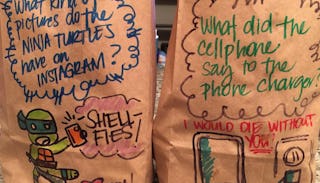 What kind of
pictures do the
NINJA TURTLES
have on
INSTAGRAM?
SHELL-
FIES!
What did the
cellphone
say to the
phone charger?
I WOULD DIE WITHOUT
YOU.